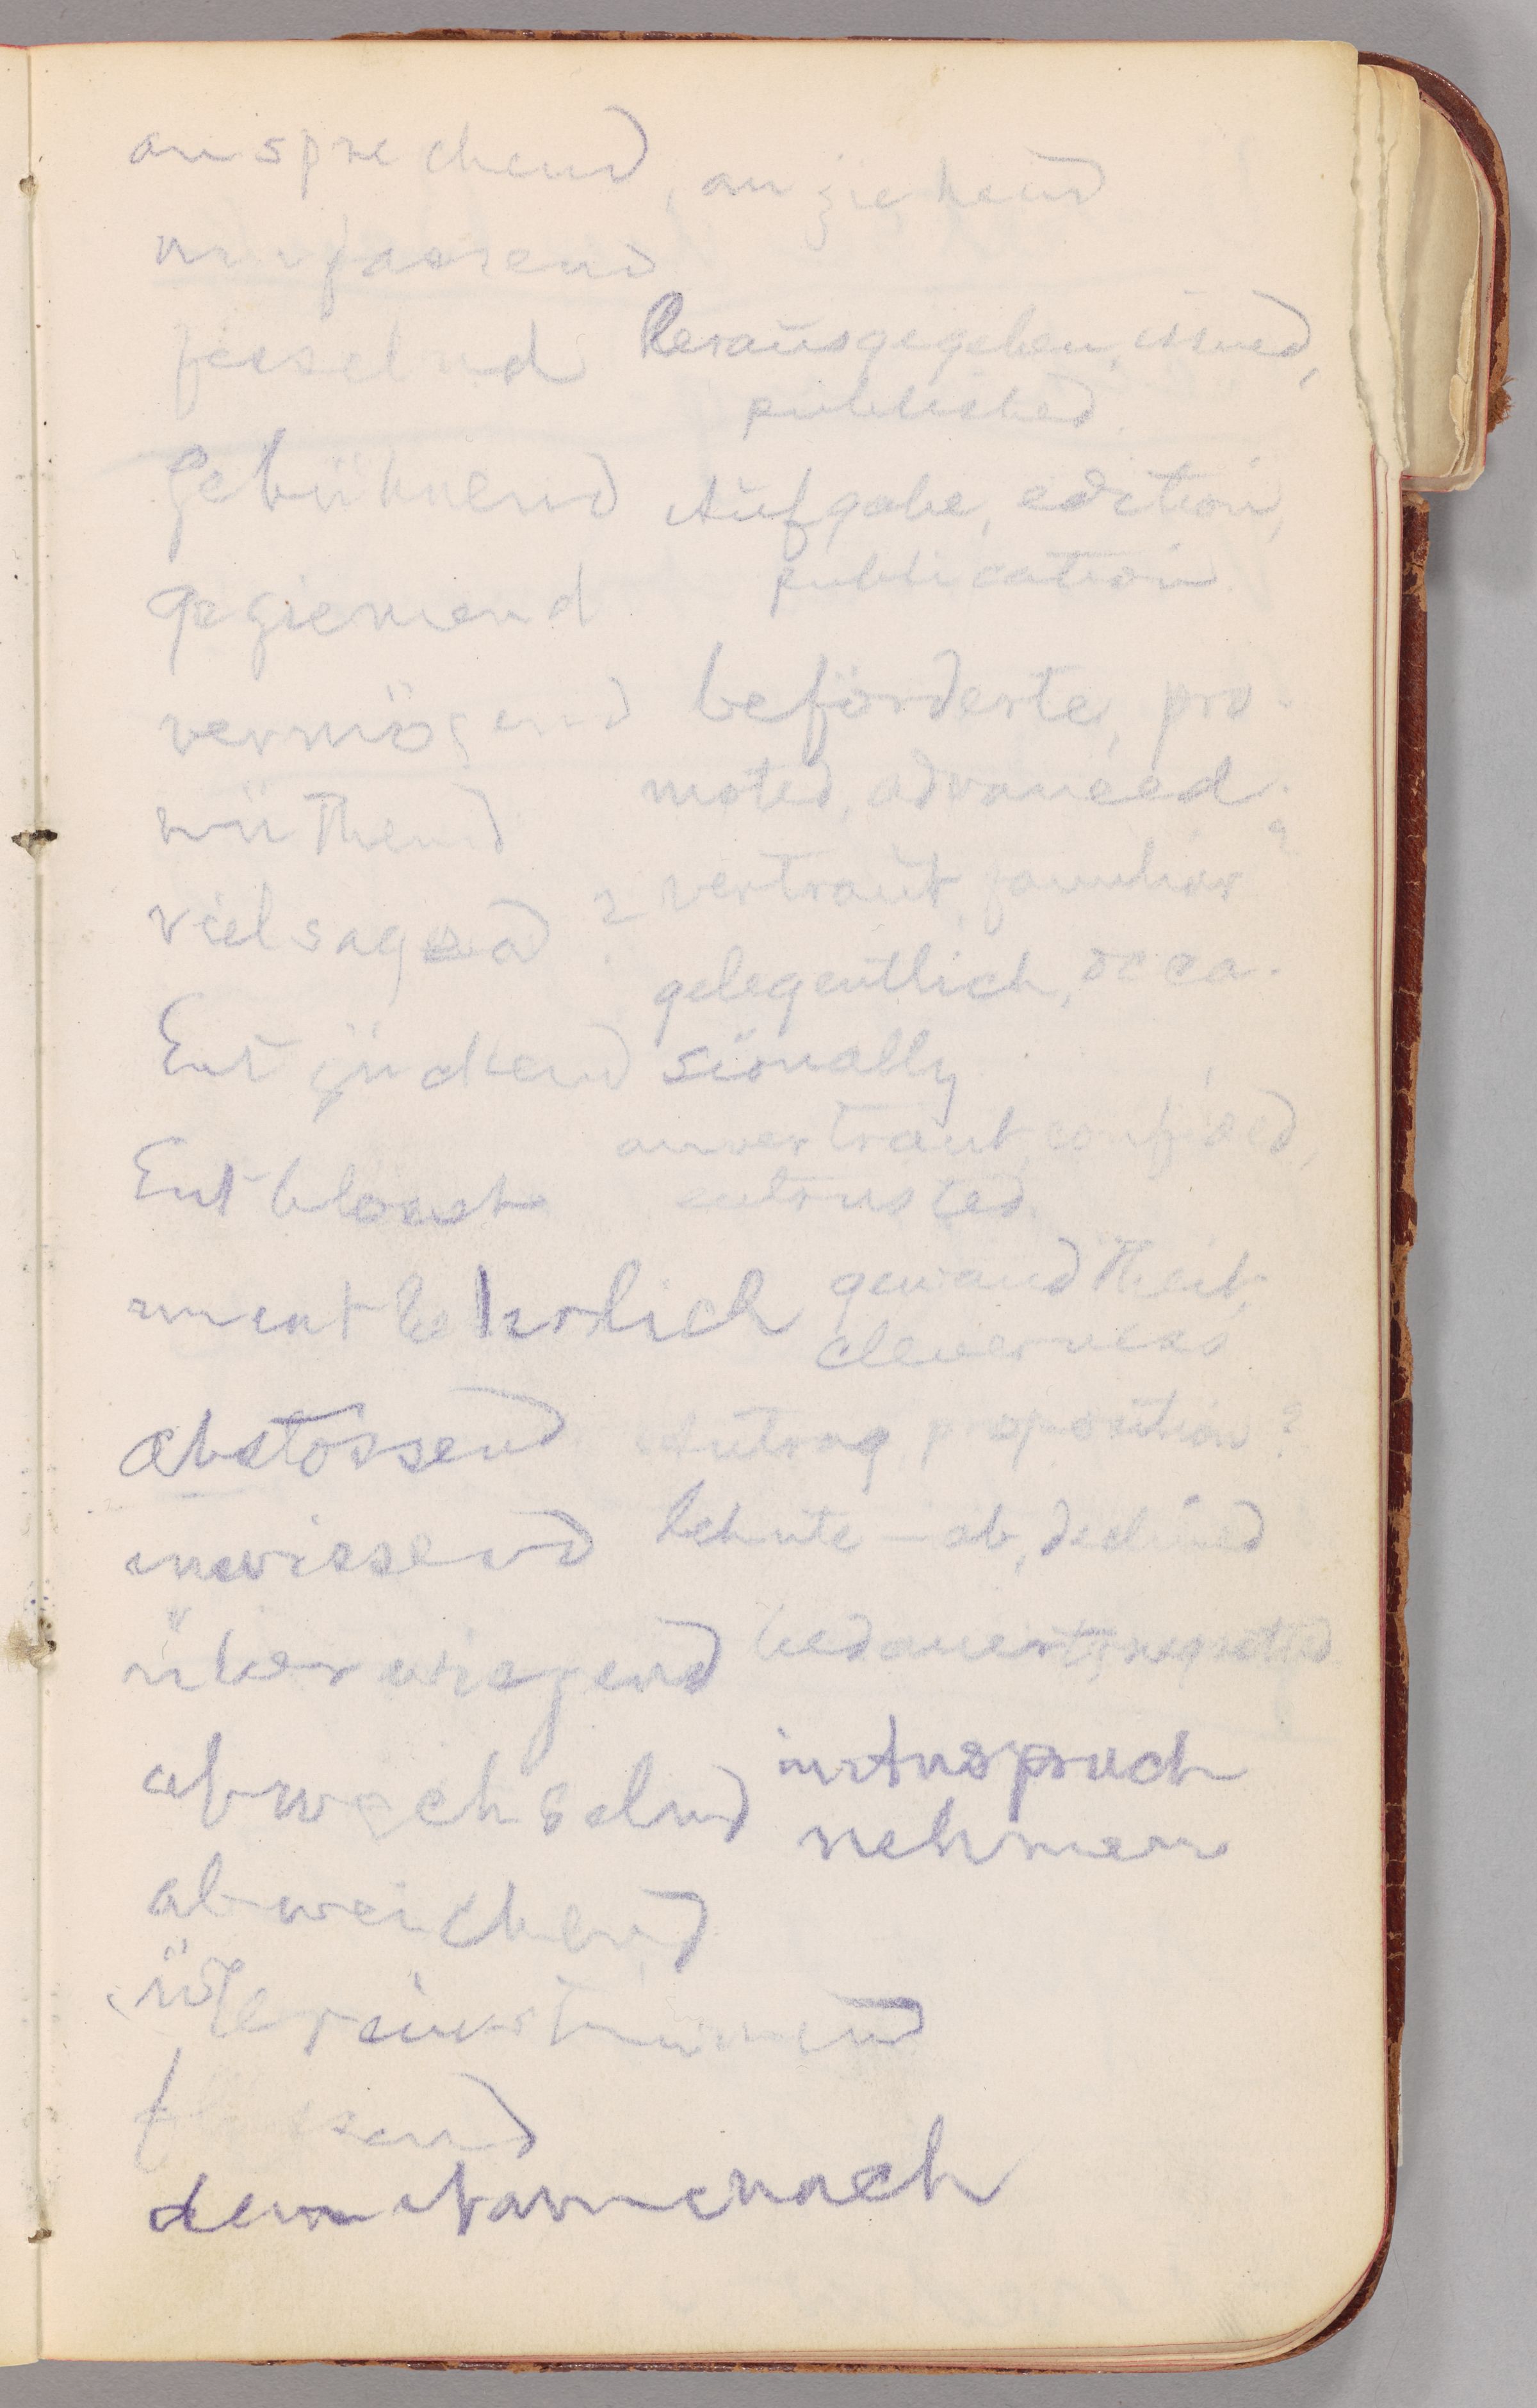 ansprechend, anziehend
umfassend
fesselnd
herausgegeben, issued,
published.
gebührend
Aufgabe, edition,
publication
geziemend
vermögend
beförderte, pro-
moted, advanced.
wüthend
vertraut, familiar?
vielsagend?
gelegentlich, occa-
sionally
Entzückend
anvertraut, confided,
entrusted.
Entblösst
unentbehrlich
gewandtheit,
cleverness
abstossend
Antrag, proposition?
unwissend
lehnte—ab, declined
überwiegend
bedauert, regretted
abwechselnd
in Anspruch
nehmen
abweichend
übereinstimmend
dem
nach